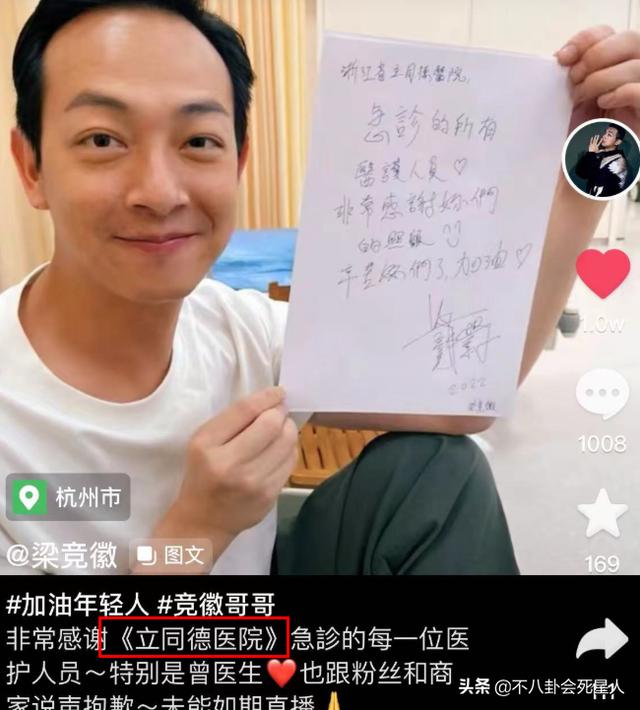 浙江省立同德醫院
急診的所有
醫護人員♡
非常感謝妳們
的照顧
辛苦妳們了,加油♡
2022
梁竞徽
1.0w
1008
169
杭州市
@梁竞徽
图文
#加油年轻人 #竞徽哥哥
非常感谢《立同德医院》急診的每一位医
护人员~特别是曾医生❤️也跟粉丝和商
家说声抱歉~未能如期直播🙏
头条 @不八卦会死星人